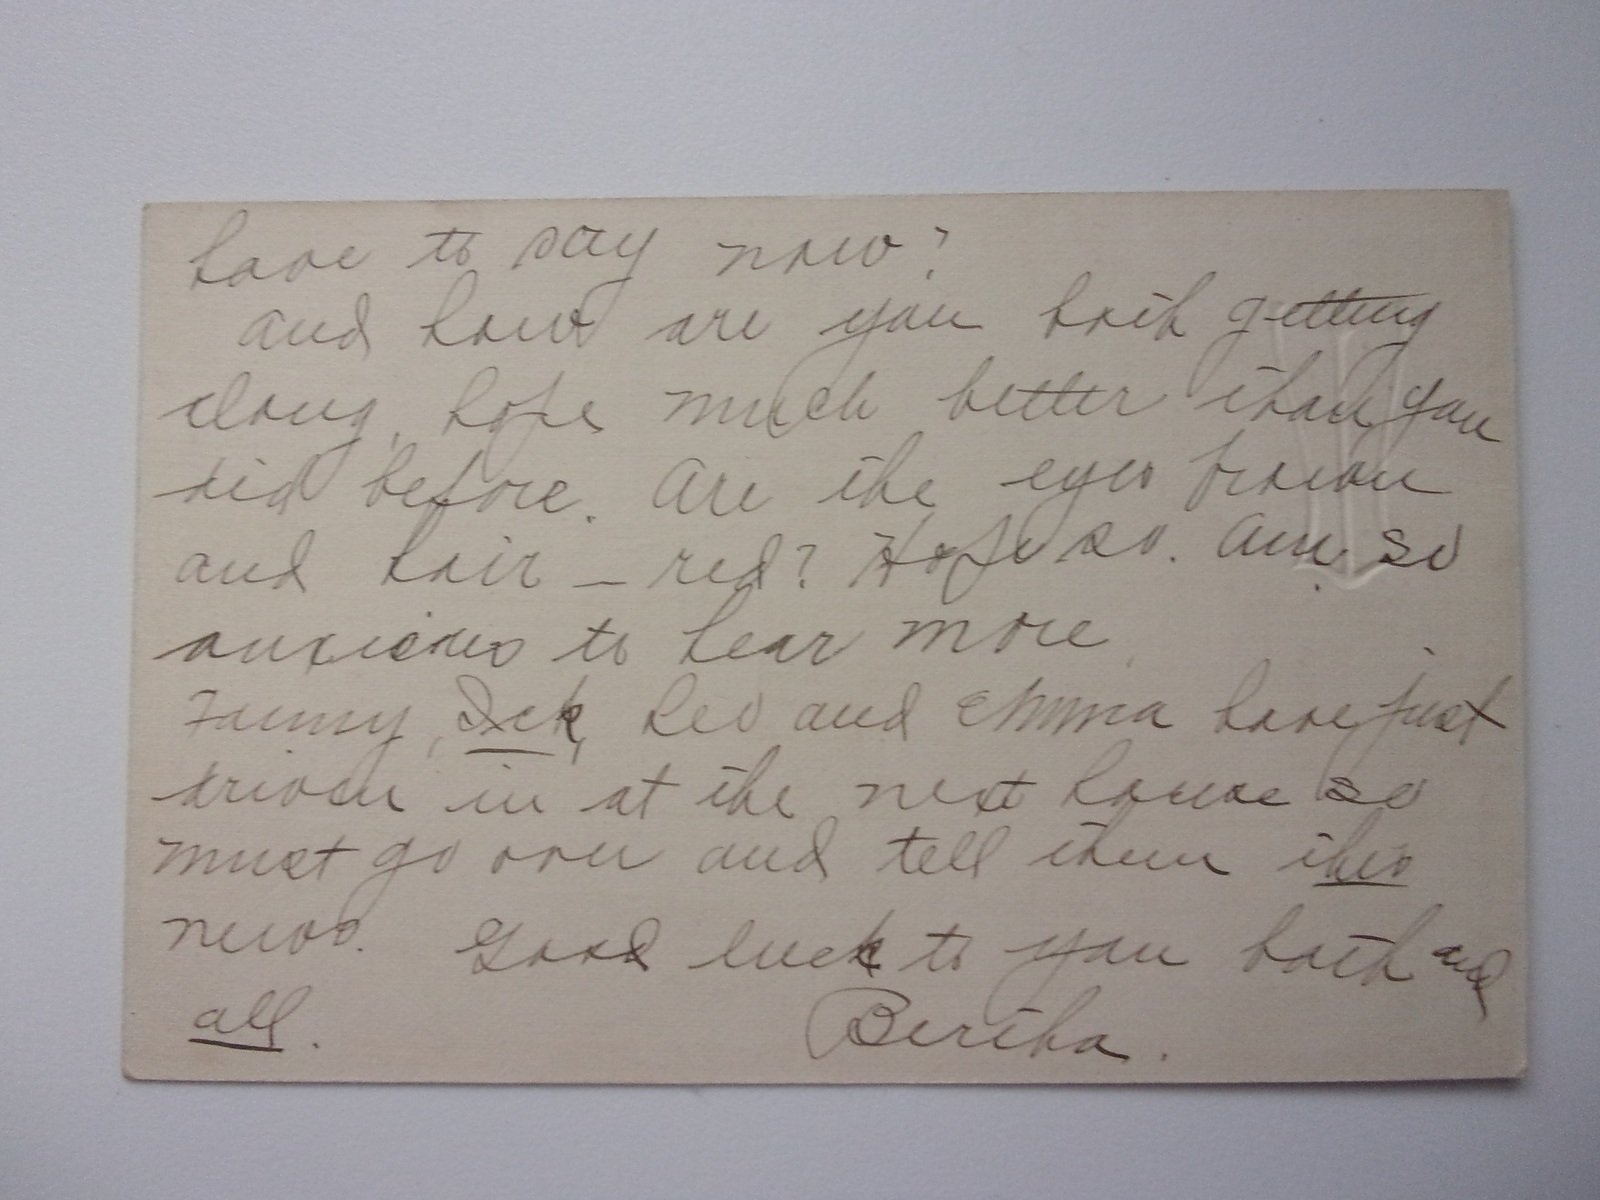 have to say now?
and how are you both getting
along, hope much better than you
did before. Are the eyes brown
and hair – red? Hope so. Am so
anxious to hear more.
Fanny, Dick, Leo and Emma have just
driven in at the next house so
must go over and tell them this
news. Good luck to you both and
all. Bertha.